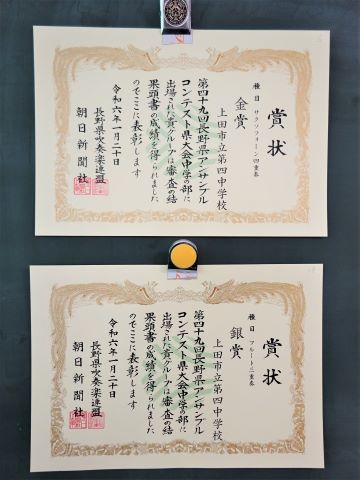 賞状
種目 サクソフォーン四重奏
金賞
上田市立第四中学校
第四十九回長野県アンサンブル
コンテスト県大会中学の部に
出場された貴グループは審査の結
果頭書の成績を得られました
のでここに表彰します
令和六年一月二十日
長野県吹奏楽連盟
朝日新聞社
賞状
種目 フルート三重奏
銀賞
上田市立第四中学校
第四十九回長野県アンサンブル
コンテスト県大会中学の部に
出場された貴グループは審査の結
果頭書の成績を得られました
のでここに表彰します
令和六年一月二十日
長野県吹奏楽連盟
朝日新聞社